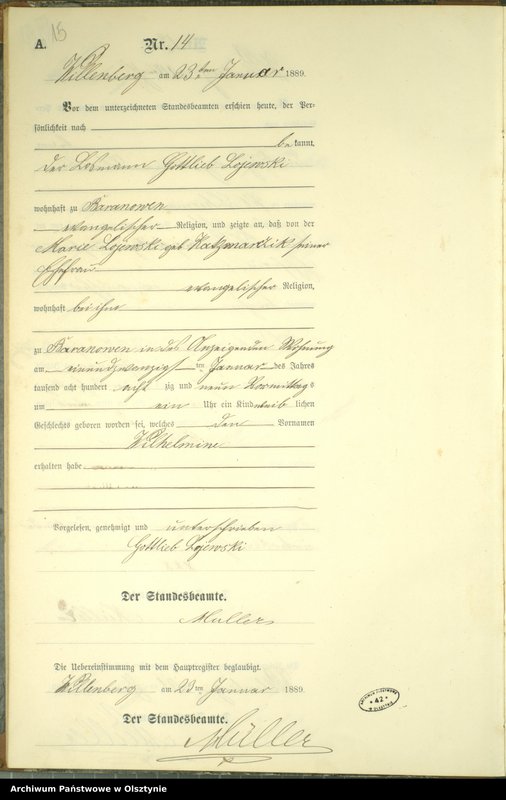 15
A.
Nr. 14
Willenberg am 23ten Januar 1889.
Vor dem unterzeichneten Standesbeamten erschien heute, der Per-
sönlichkeit nach
bekannt,
der Losmann Gottlieb Lojewski
wohnhaft zu Baranowen
evangelischer Religion, und zeigte an, daß von der
Marie Lojewski geb Katzmarzik seiner
Ehefrau
evangelischer Religion,
wohnhaft bei ihm
zu Baranowen in des Anzeigenden Wohnung
am einundzwanzigsten Januar des Jahres
tausend acht hundert achtzig und neun Vormittags
um ein Uhr ein Kind weiblichen
Geschlechts geboren worden sei, welches den Vornamen
Wilhelmine
erhalten habe
Vorgelesen, genehmigt und unterschrieben
Gottlieb Lojewski
Der Standesbeamte.
Müller
Die Uebereinstimmung mit dem Hauptregister beglaubigt.
Willenberg am 23ten Januar 1889.
Der Standesbeamte.
Müller
42
Archiwum Państwowe w Olsztynie